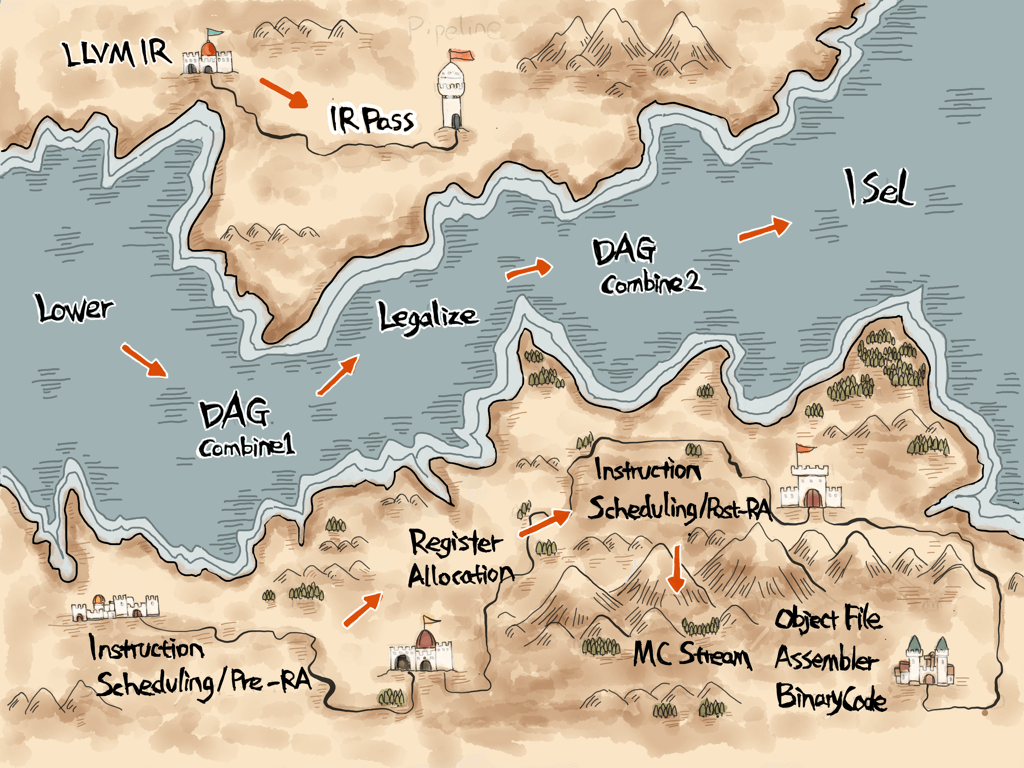 Pipeline
LLVM IR
IR Pass
ISel
DAG
Combine2
Lower
Legalize
DAG
Combine1
Instruction
Scheduling/Post-RA
Register
Allocation
Instruction
Scheduling/Pre-RA
MC Stream
Object File
Assembler
Binary Code